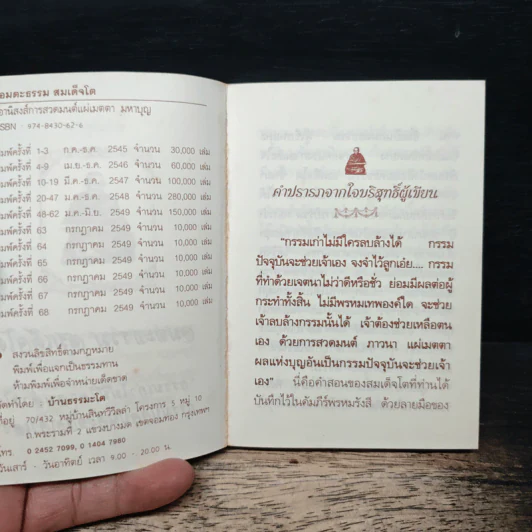 อมตะธรรม สมเด็จโต
อานิสงส์การสวดมนต์แผ่เมตตา มหาบุญ
ISBN : 974-8430-62-6
พิมพ์ครั้งที่ 1-3 ก.ค.-ธ.ค. 2545 จำนวน 30,000 เล่ม
พิมพ์ครั้งที่ 4-9 เม.ย.-ธ.ค. 2546 จำนวน 60,000 เล่ม
พิมพ์ครั้งที่ 10-19 มี.ค.-ธ.ค. 2547 จำนวน 100,000 เล่ม
พิมพ์ครั้งที่ 20-47 ม.ค.-ธ.ค. 2548 จำนวน 280,000 เล่ม
พิมพ์ครั้งที่ 48-62 ม.ค.-มิ.ย. 2549 จำนวน 150,000 เล่ม
พิมพ์ครั้งที่ 63 กรกฎาคม 2549 จำนวน 10,000 เล่ม
พิมพ์ครั้งที่ 64 กรกฎาคม 2549 จำนวน 10,000 เล่ม
พิมพ์ครั้งที่ 65 กรกฎาคม 2549 จำนวน 10,000 เล่ม
พิมพ์ครั้งที่ 66 กรกฎาคม 2549 จำนวน 10,000 เล่ม
พิมพ์ครั้งที่ 67 กรกฎาคม 2549 จำนวน 10,000 เล่ม
พิมพ์ครั้งที่ 68 กรกฎาคม 2549 จำนวน 10,000 เล่ม
สงวนลิขสิทธิ์ตามกฎหมาย
พิมพ์เพื่อแจกเป็นธรรมทาน
ห้ามพิมพ์เพื่อจำหน่ายเด็ดขาด
จัดทำโดย : บ้านธรรมะโต
ที่อยู่ 70/432 หมู่บ้านสินทวีวิลล่า โครงการ 5 หมู่ 10
ถ.พระรามที่ 2 แขวงบางมด เขตจอมทอง กรุงเทพฯ
โทร. 0 2452 7099, 0 1404 7980
วันเสาร์ - วันอาทิตย์ เวลา 9.00 - 20.00 น.
คำปรารภจากใจบริสุทธิ์ผู้เขียน
"กรรมเก่าไม่มีใครลบล้างได้ กรรม
ปัจจุบันจะช่วยเจ้าเอง จงจำไว้ลูกเอ๋ย.... กรรม
ที่ทำด้วยเจตนาไม่ว่าดีหรือชั่ว ย่อมมีผลต่อผู้
กระทำทั้งสิ้น ไม่มีพรหมเทพองค์ใด จะช่วย
เจ้าลบล้างกรรมนั้นได้ เจ้าต้องช่วยเหลือตน
เอง ด้วยการสวดมนต์ ภาวนา แผ่เมตตา
ผลแห่งบุญอันเป็นกรรมปัจจุบันจะช่วยเจ้า
เอง" นี่คือคำสอนของสมเด็จโตที่ท่านได้
บันทึกไว้ในคัมภีร์พรหมรังสี ด้วยลายมือของ